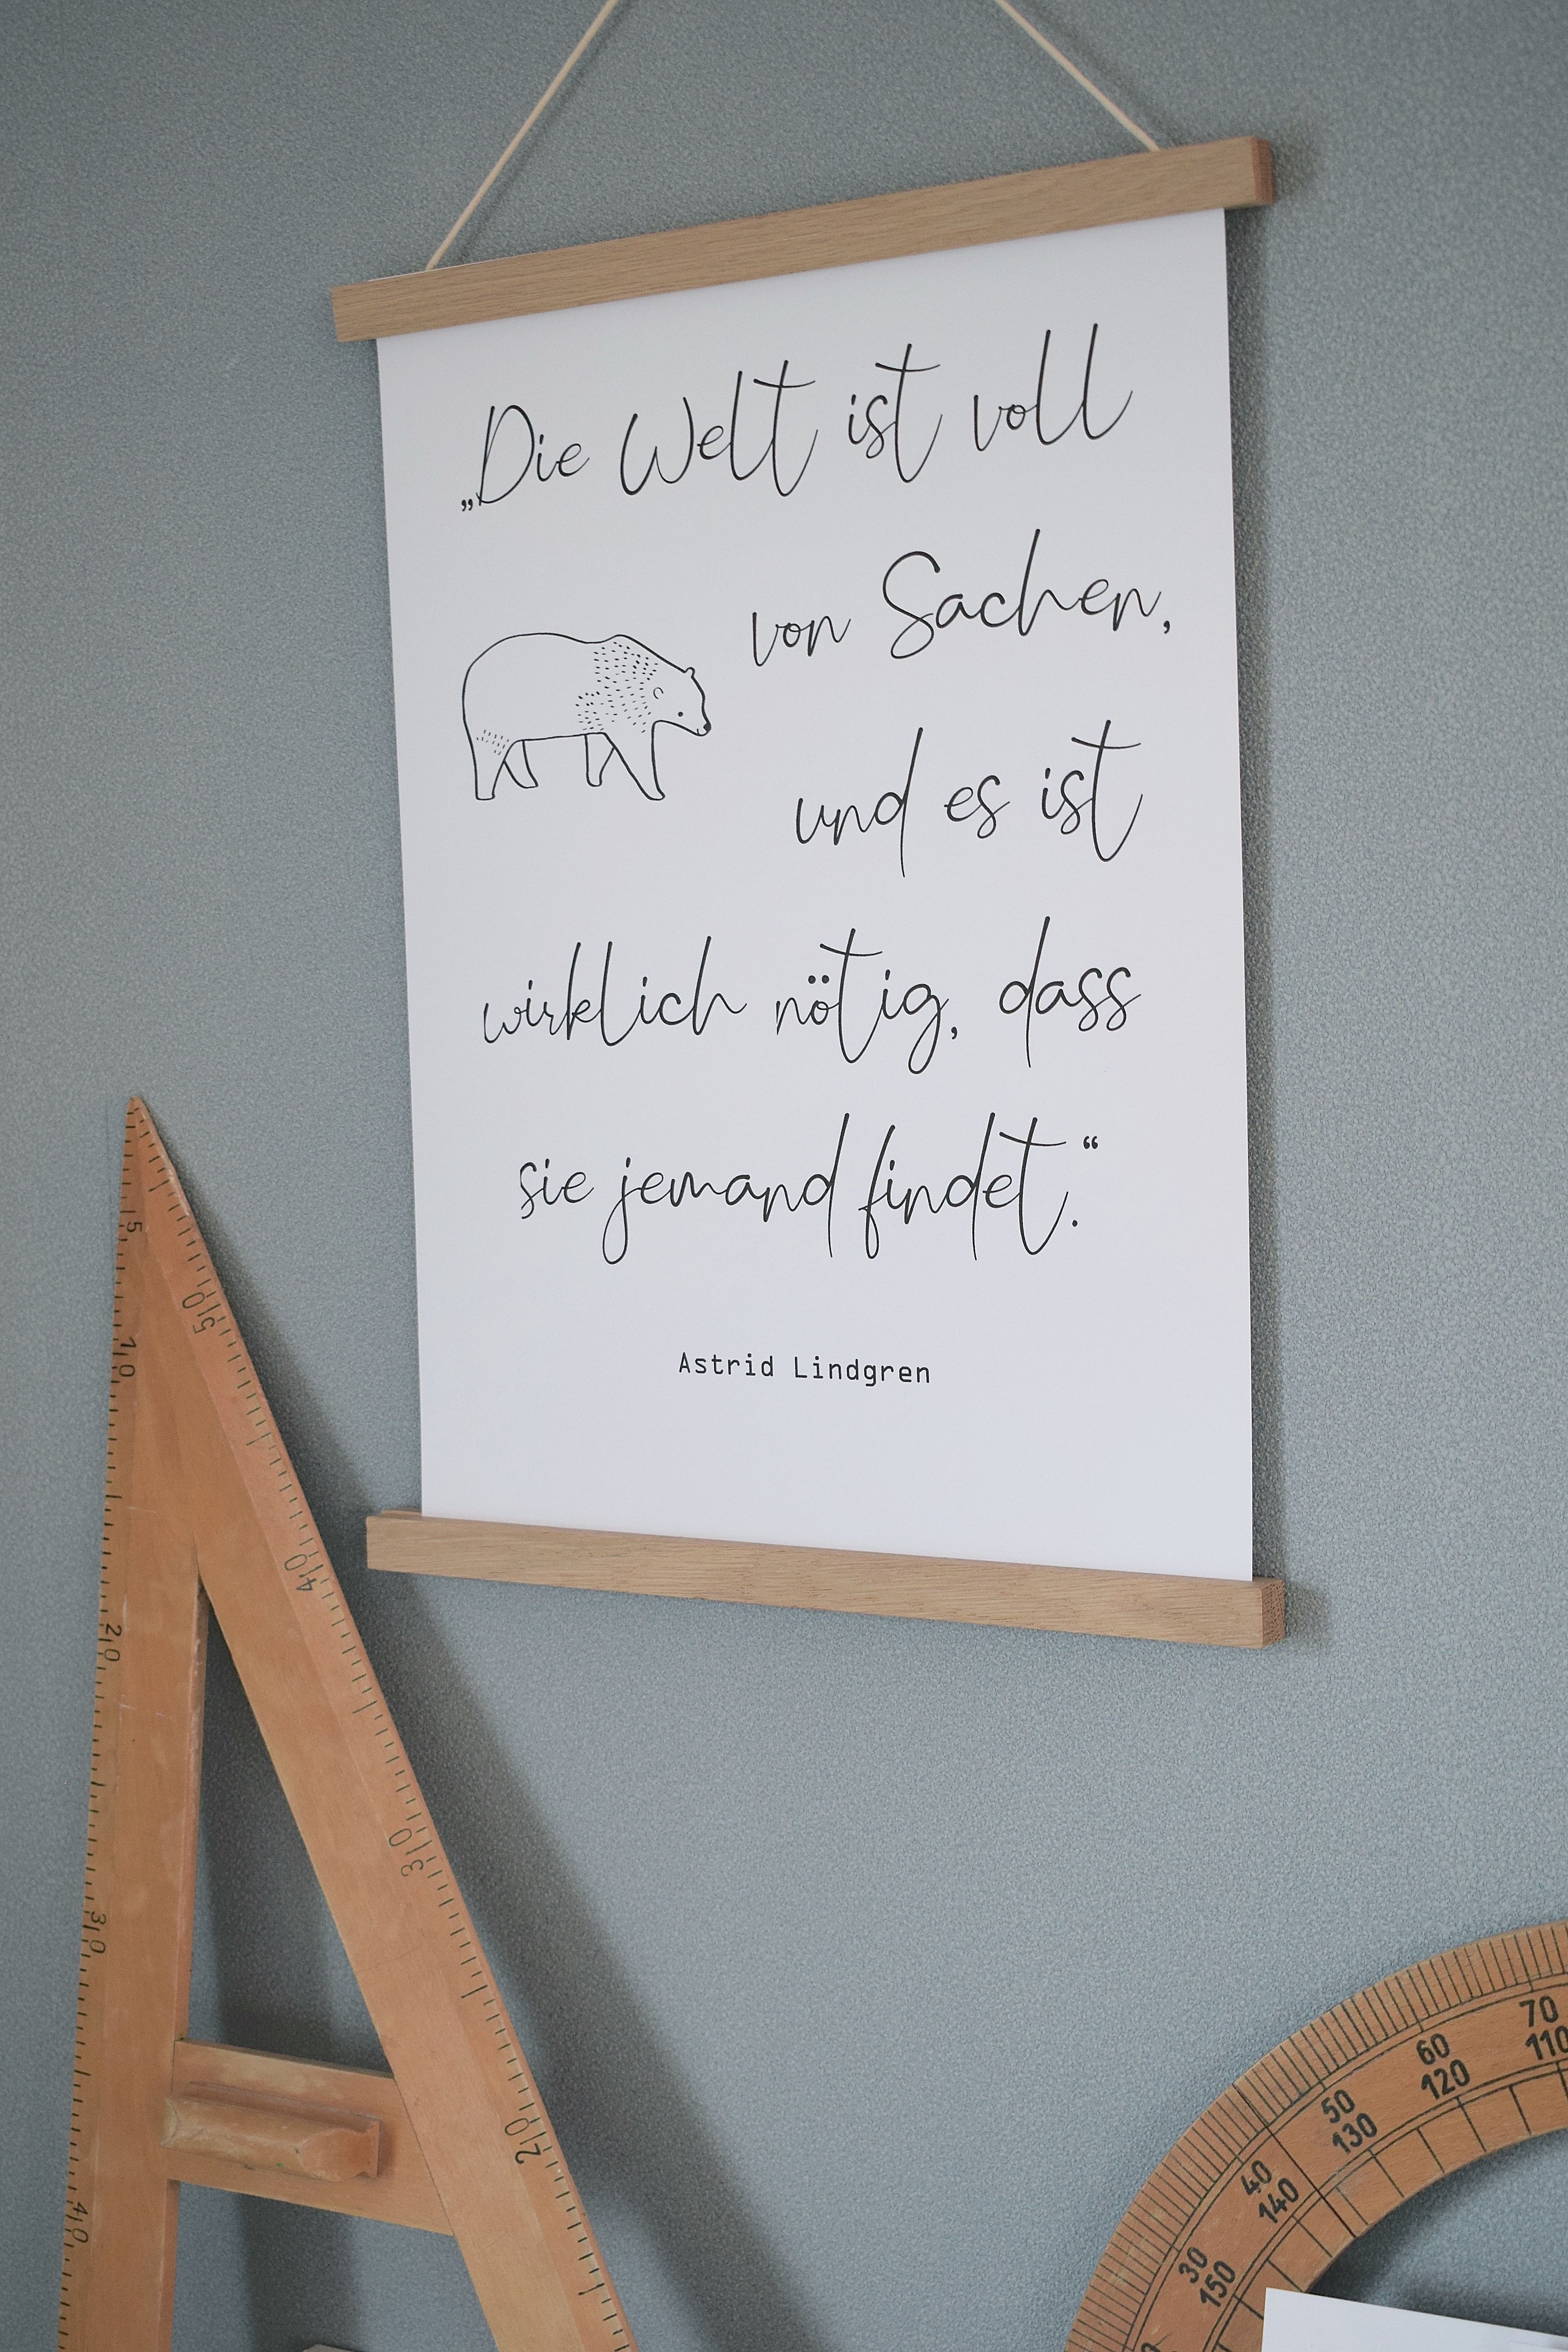 „Die Welt ist voll
von Sachen,
und es ist
wirklich nötig, dass
sie jemand findet.“
Astrid Lindgren
5
10
20
30
40
50
40
30
20
70
110
60
120
50
130
40
140
30
150